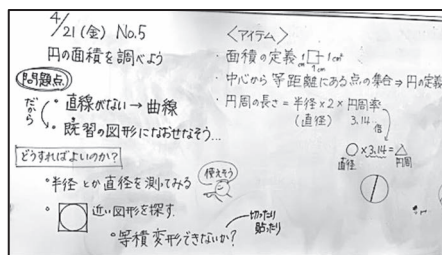 4/21(金) No.5
円の面積を調べよう
問題点
だから
・直線がない→曲線
・既習の図形になおせなそう…
どうすればよいのか?
・半径とか直径を測ってみる
使えそう
・近い図形を探す.
・等積変形できないか?
切ったり
貼ったり
〈アイテム〉
・面積の定義 1cm 1cm 1cm²
・中心から等距離にある点の集合→円の定義
・円周の長さ=半径×2×円周率
(直径) 3.14… 倍
○×3.14=△
直径 円周